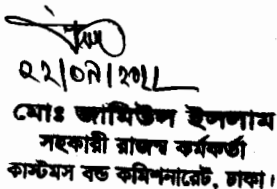 ২২/০৮/২০২২
মোঃ জামিউল ইসলাম
সহকারী রাজস্ব কর্মকর্তা
কাস্টমস বন্ড কমিশনারেট, ঢাকা।